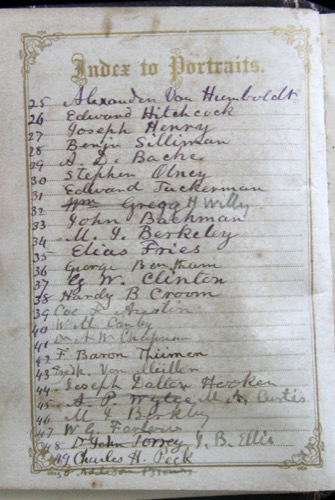 Index to Portraits.
25 Alexander Von Humboldt
26 Edward Hitchcock
27 Joseph Henry
28 Benjn Silliman
29 A. D. Bache
30 Stephen Olney
31 Edward Tuckerman
32 Wm Gregg H Willy
33 John Bachman
34 M. J. Berkeley
35 Elias Fries
36 George Bentham
37 G. W. Clinton
38 Hardy B Croom
39 Coe F. Austin
40 W. M. Canby
41 A W Chapman
42 F. Baron Thümen
43 Von Müller
44 Joseph Dalton Hooker
45 S. P. M. A. Curtis
46 M. J. Berkley
47 W. G. Farlow
48 Dr John Torrey J. B. Ellis
49 Charles H. Peck
50